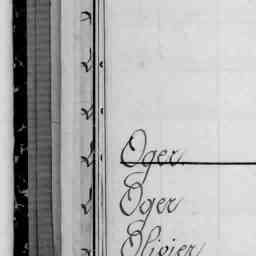 Oger
Oger
Olivier